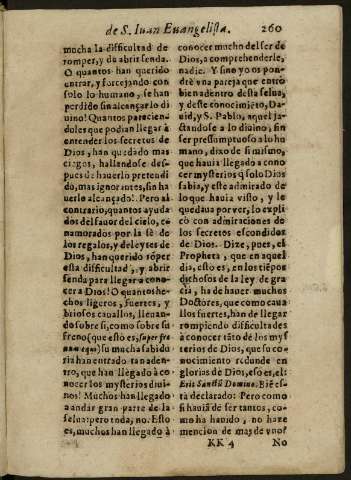 de S. Iuan Euangelista. 260
mucha la dificultad de
romper, y de abrir senda.
O quantos han querido
entrar, y forcejando con
solo lo humano, se han
perdido sin alcançar lo di-
uino! Quantos parecien-
doles que podian llegar à
entender los secretos de
Dios, han quedado mas
ciegos, hallandose des-
pues de hauerlo pretendi
do, mas ignorantes, sin ha
uerlo alcançado!. Pero al
contrario, quantos ayuda
dos del fauor del cielo, e-
namorados por la fè de
los regalos, y de leyes de
Dios, han querido rõper
esta dificultad, y abrir
senda para llegar a cono-
cer a Dios! O quantos he-
chos ligeros, fuertes, y
briosos cauallos, lleuan-
do sobre si, como sobre su
freno (que esto es, super fre
num equi) su mucha sabidu
ria han entrado tan aden-
tro, que han llegado à co-
nocer los mysterios diui-
nos! Muchos han llegado
a andar gran parte de la
selua: pero toda, no. Esto
es, muchos han llegado à
conocer mucho del ser de
Dios, a comprehenderle,
nadie. Y sino yo os pon-
drè vna pareja que entrò
bien adentro desta selua,
y deste conocimiento, Da-
uid, y S. Pablo, aquel ja-
ctandose a lo diuino, sin
ser presumptuoso a lo hu
mano, dixo de si mismo,
que hauia llegado a cono
cer mysterios q̃ solo Dios
sabia, y este admirado de
lo que hauia visto, y le
quedaua por ver, lo expli
cò con admiraciones de
los secretos escondidos
de Dios. Dize, pues, el
Propheta, que en aquel
dia, esto es, en los tiẽpos
dichosos de la ley de gra-
cia, ha de hauer muchos
Doctores, que como caua
llos fuertes, han de llegar
rompiendo dificultades
à conocer tãto de los mys
terios de Dios, que su co-
nocimiento redunde en
glorias de Dios, esso es, el:
Erit Sanctũ Domino. Biẽ es-
tà declarado: Pero como
si hauià de ser tantos, co-
mo ha hauido, no haze
mencion de mas de vno?
KK 4 No